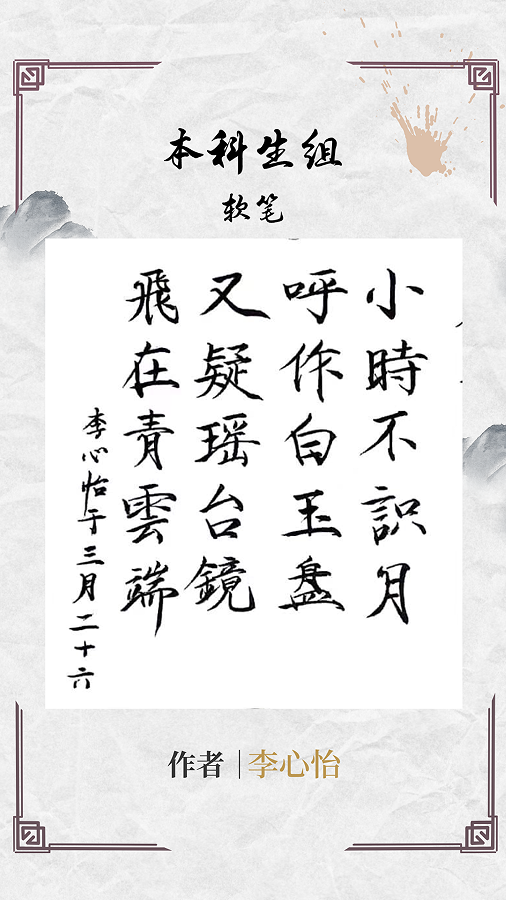 本科生组
软笔
小時不識月
呼作白玉盘
又疑瑶台鏡
飛在青雲端
李心怡于三月二十六
作者 | 李心怡